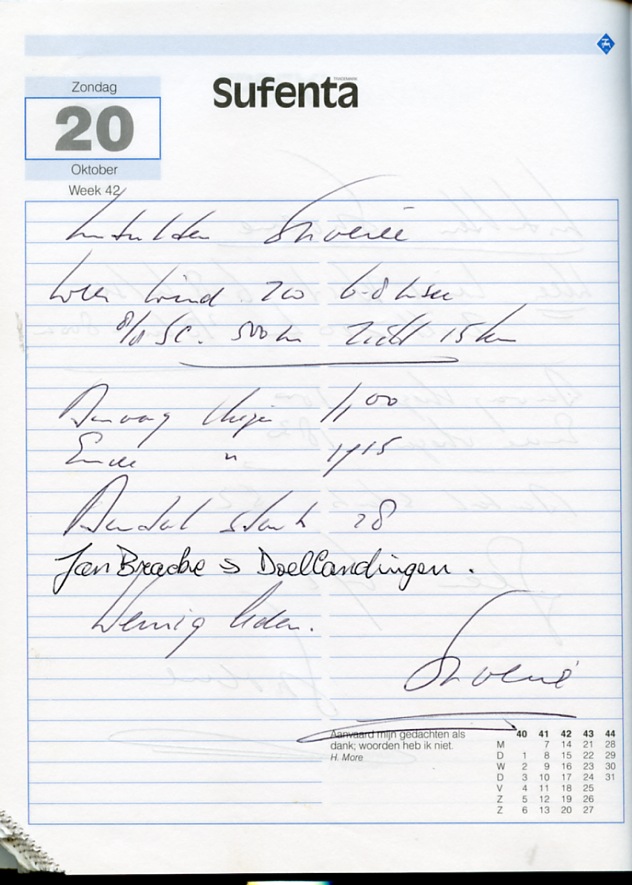 Zondag
20
Oktober
Week 42
Sufenta
Instructeur
Weer Wind 20 6-8 k
8/8 Sc. 500 m Zicht 15 km
Aanvang vliegen 11,00
Einde " 17,15
Aantal starts 28
Jan Breacke 5 Doellandingen.
Weinig leden.
Aanvaard mijn gedachten als
dank; woorden heb ik niet.
H. More
40 41 42 43 44
M 7 14 21 28
D 1 8 15 22 29
W 2 9 16 23 30
D 3 10 17 24 31
V 4 11 18 25
Z 5 12 19 26
Z 6 13 20 27